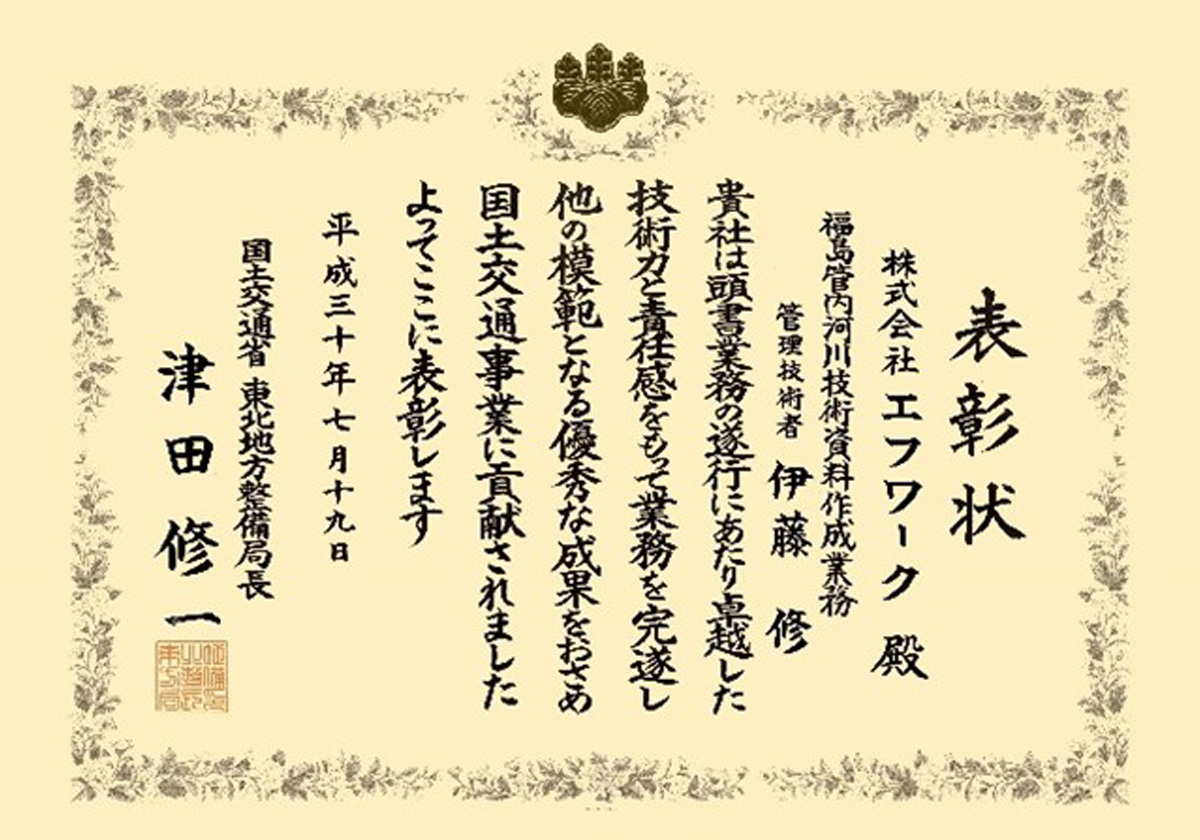 表彰状
株式会社 エフワーク 殿
福島管内河川技術資料作成業務
管理技術者 伊藤 修
貴社は頭書業務の遂行にあたり卓越した
技術力と責任感をもって業務を完遂し
他の模範となる優秀な成果をおさめ
国土交通事業に貢献されました
よってここに表彰します
平成三十年七月十九日
国土交通省 東北地方整備局長
津田修一